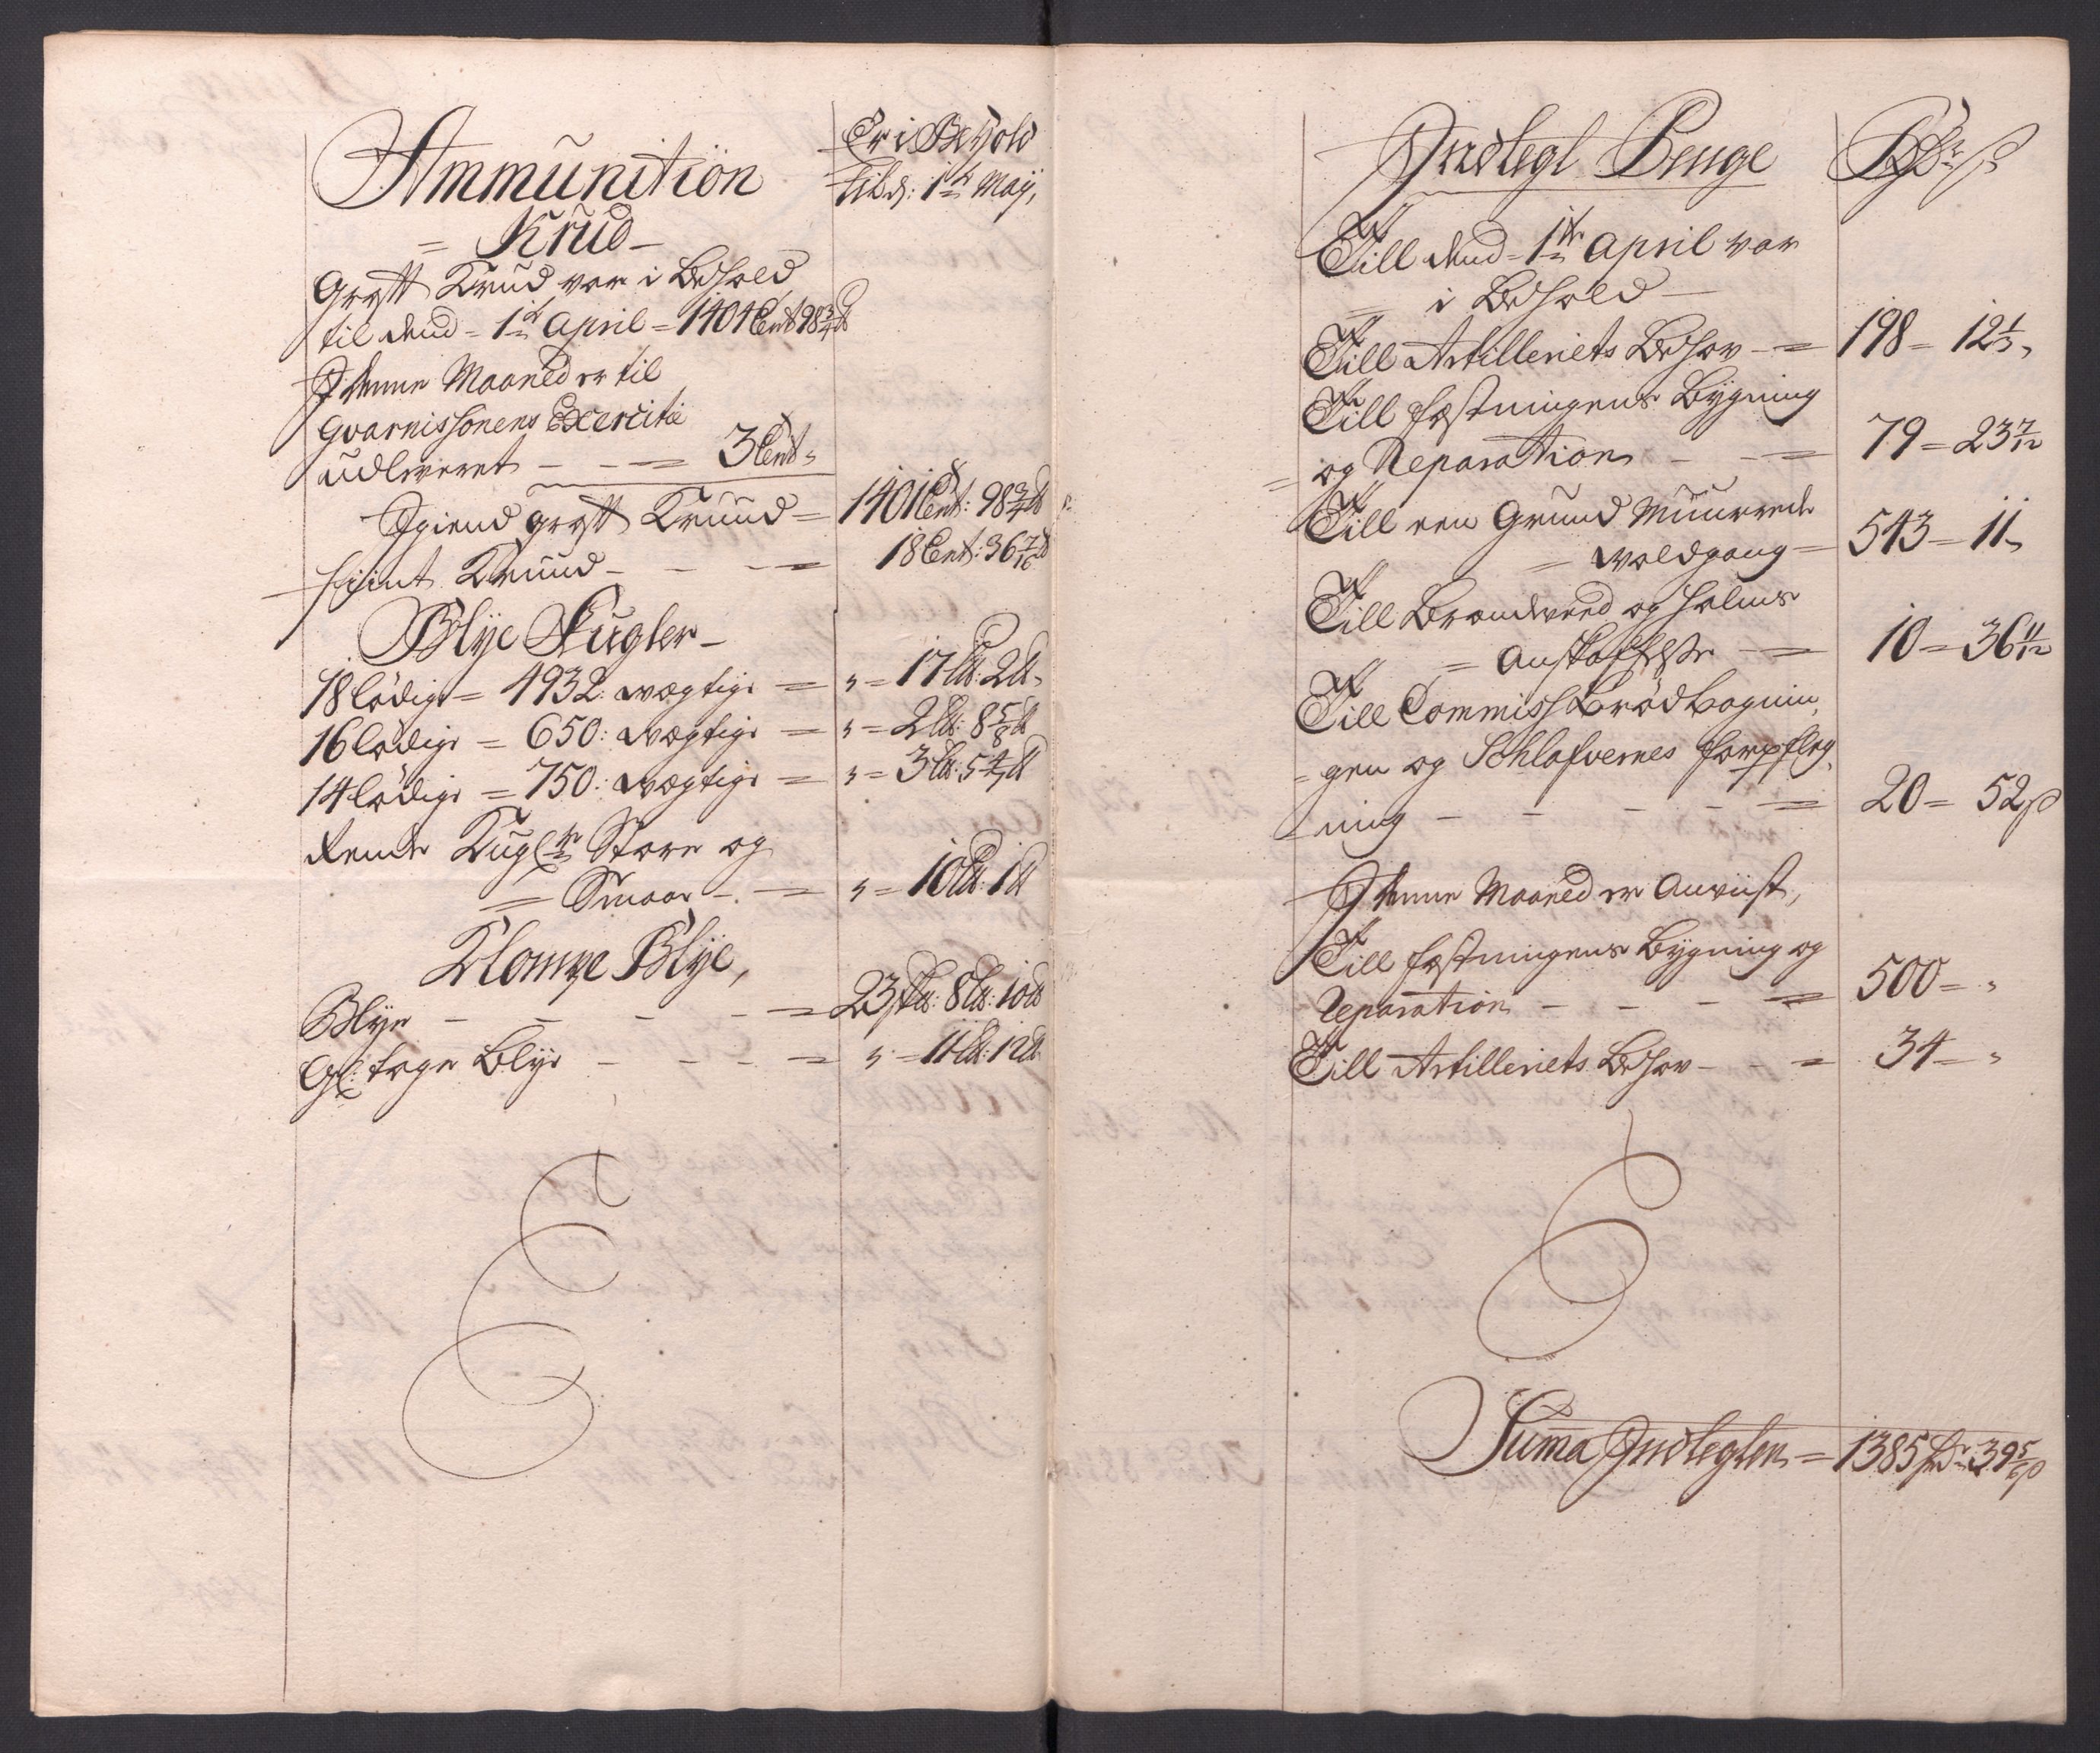 Ammunition
Er i Behold
til d: 1te Maÿ,
= Krud -
Groft Krud var i Behold
til dend = 1te April = 1404 Cent 98 3/4 ℔
I denne Maaned er til
Gvarnissonens Exercitie
udleveret - - = 3 Cent
Igiend groft Kruud = 1401 Cent: 98 3/4 ℔
fijint Kruud - - - = 18 Cent: 36 7/16 ℔
Blye Kugler -
18 lödige = 4932: vægtige = " = 17 L℔: 2 ℔
16 lödige = 650: vægtige = " = 2 L℔: 8 5/8 ℔
14 lödige = 750: vægtige = " = 3 L℔: 5 4/7 ℔
Rende Kugler Store og
= Smaae - = " = 10 L℔: 1 ℔
Klompe Blye,
Blye - - - - = 23 sk℔: 8 L℔: 10 ℔
Gl: tage Blye - - - = " = 11 L℔: 12 ℔
Indlegt Penge Rdr ß
Till dend = 1te April var
= i Behold -
Till Artilleriets Behov - = 198 = 12 1/3 "
Till festningens Bygning
= og Reparation - - = 79 = 23 7/12
Till een Grund Muurrede
= Voldgang = 543 = 11 "
Till Brændeveed og halms
= Anskaffelse - = 10 = 36 11/12
Till Commiss Brödbagnin,
= gen og Schlafvernes forpfleg,
= ning - - - - = 20 = 52 ß
I denne Maaned er Anviist,
Till festningens Bygning og
Reparation - - - = 500 = "
Till Artilleriets Behov - - = 34 = "
Suma Indlegten = 1385 Rdr: 39 5/6 ß